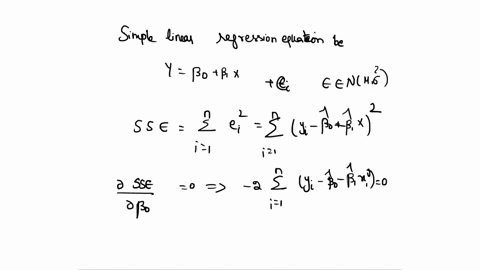 Simple linear regression equation be
Y = β0 + β1 x + ei   ε ∈ N(μ, σ²)
SSE = Σ_{i=1}^{n} e_i² = Σ_{i=1}^{n} (y_i - β̂0 + β̂1 x)²
∂SSE/∂β0 = 0 => -2 Σ_{i=1}^{n} (y_i - β̂0 - β̂1 x_i) = 0